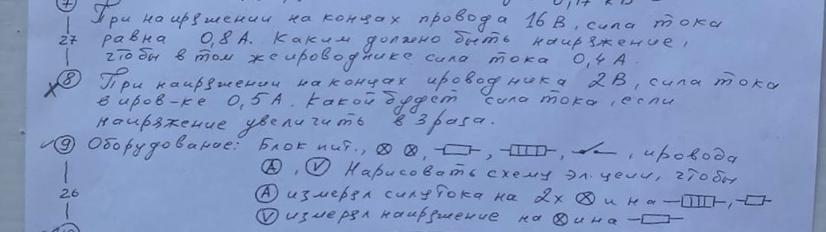 7 При напряжении на концах провода 16 В, сила тока
27 равна 0,8 А. Каким должно быть напряжение,
чтобы в том же проводнике сила тока 0,4 А.
8 При напряжении на концах проводника 2 В, сила тока
в пров-ке 0,5 А. Какой будет сила тока, если
напряжение увеличить в 3 раза.
9 Оборудование: Блок пит., , провода
A, V Нарисовать схему эл. цепи, чтобы
26 A измерял силу тока на 2х и на
V измерял напряжение на и на